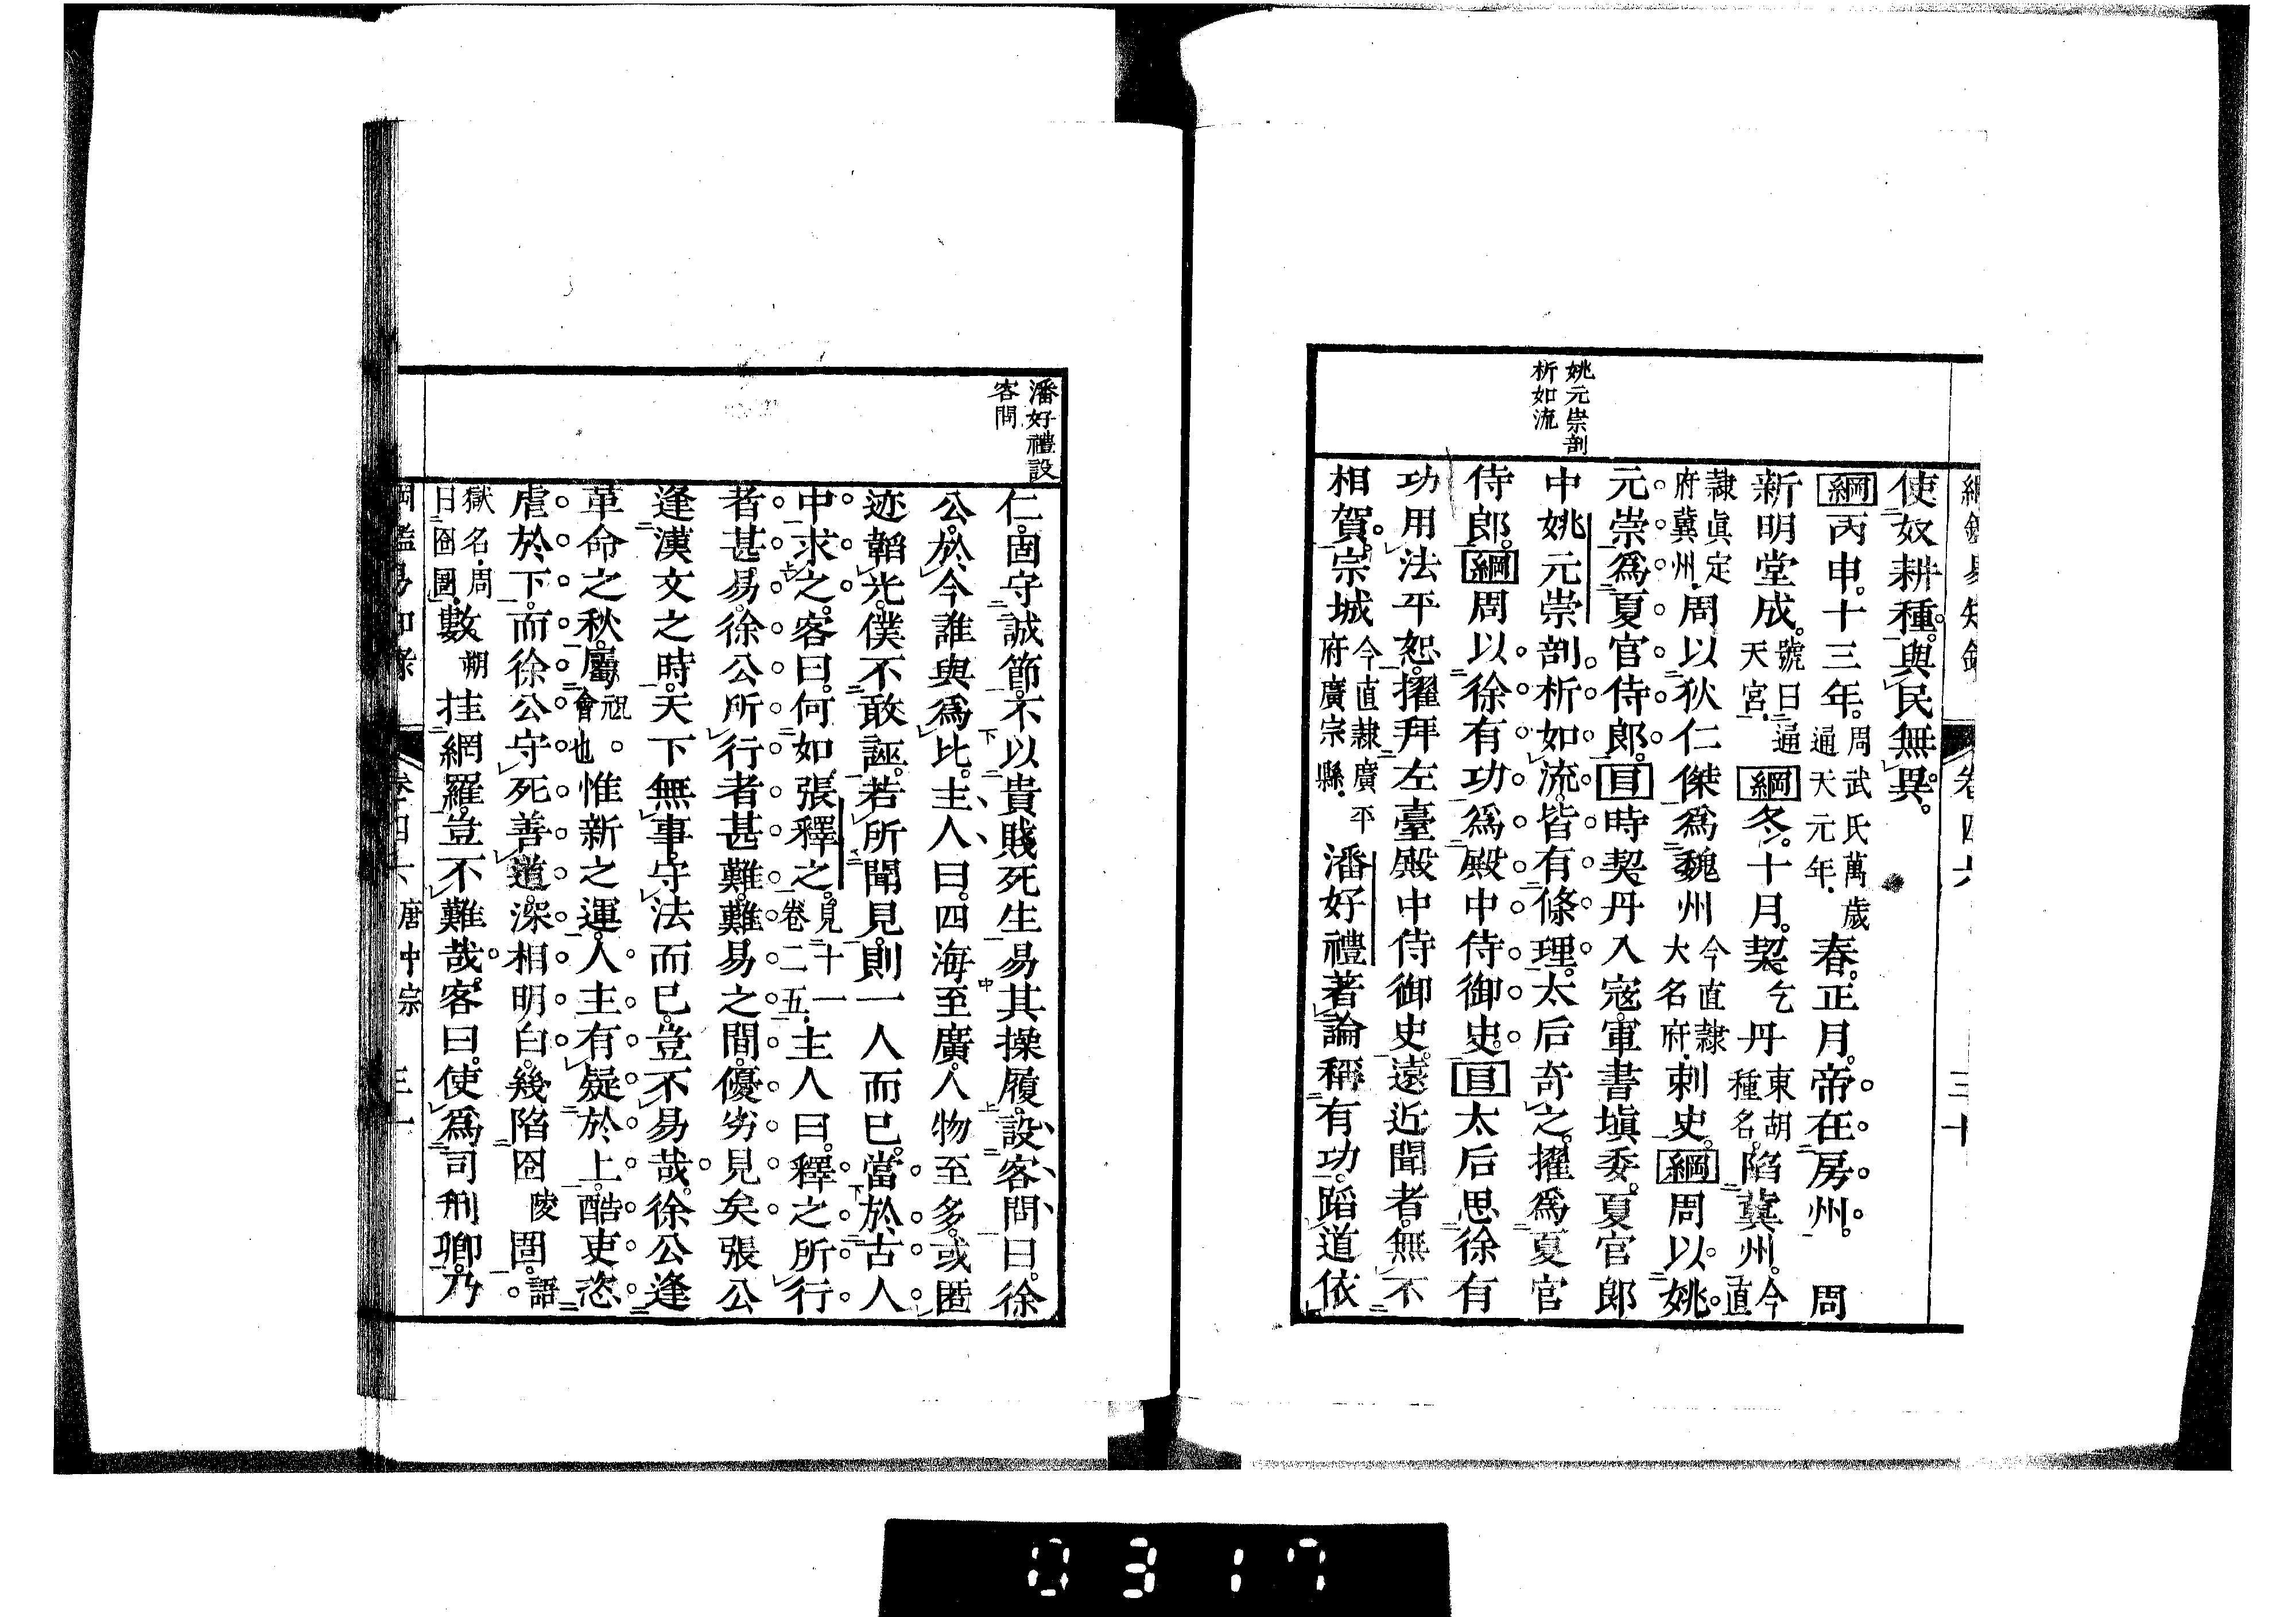 姚元崇剖
析如流
使奴耕種。與民無異。
綱丙申。十三年。周武氏萬歲通天元年。春。正月。帝在房州。周
新明堂成。號曰通天宮。綱冬。十月。契乞丹東胡種名。陷冀州。今直
隸眞定府冀州。周以狄仁傑爲魏州今直隸大名府。刺史。綱周以姚
元崇爲夏官侍郎。目時契丹入寇。軍書塡委。夏官郎
中姚元崇剖析如流。皆有條理。太后奇之。擢爲夏官
侍郎。綱周以徐有功爲殿中侍御史。目太后思徐有
功用法平恕。擢拜左臺殿中侍御史。遠近聞者。無不
相賀。宗城今直隸廣平府廣宗縣。潘好禮著論稱有功。蹈道依
潘好禮設
客問
仁。固守誠節。不以貴賤死生易其操履。設客問曰。徐
公。於今誰與爲比。主人曰。四海至廣。人物至多。或匿
迹韜光。僕不敢誣。若所聞見。則一人而已。當於古人
中求之。客曰。何如張釋之。見十一卷二五。主人曰。釋之所行
者甚易。徐公所行者甚難。難易之間。優劣見矣。張公
逢漢文之時。天下無事。守法而已。豈不易哉。徐公逢
革命之秋。屬祝會也惟新之運。人主有疑於上。酷吏恣
虐於下。而徐公守死善道。深相明白。幾陷囹陵圄。語
獄名。周曰囹圄。數朔挂網羅。豈不難哉。客曰。使爲司刑卿。乃
唐中宗 三十一